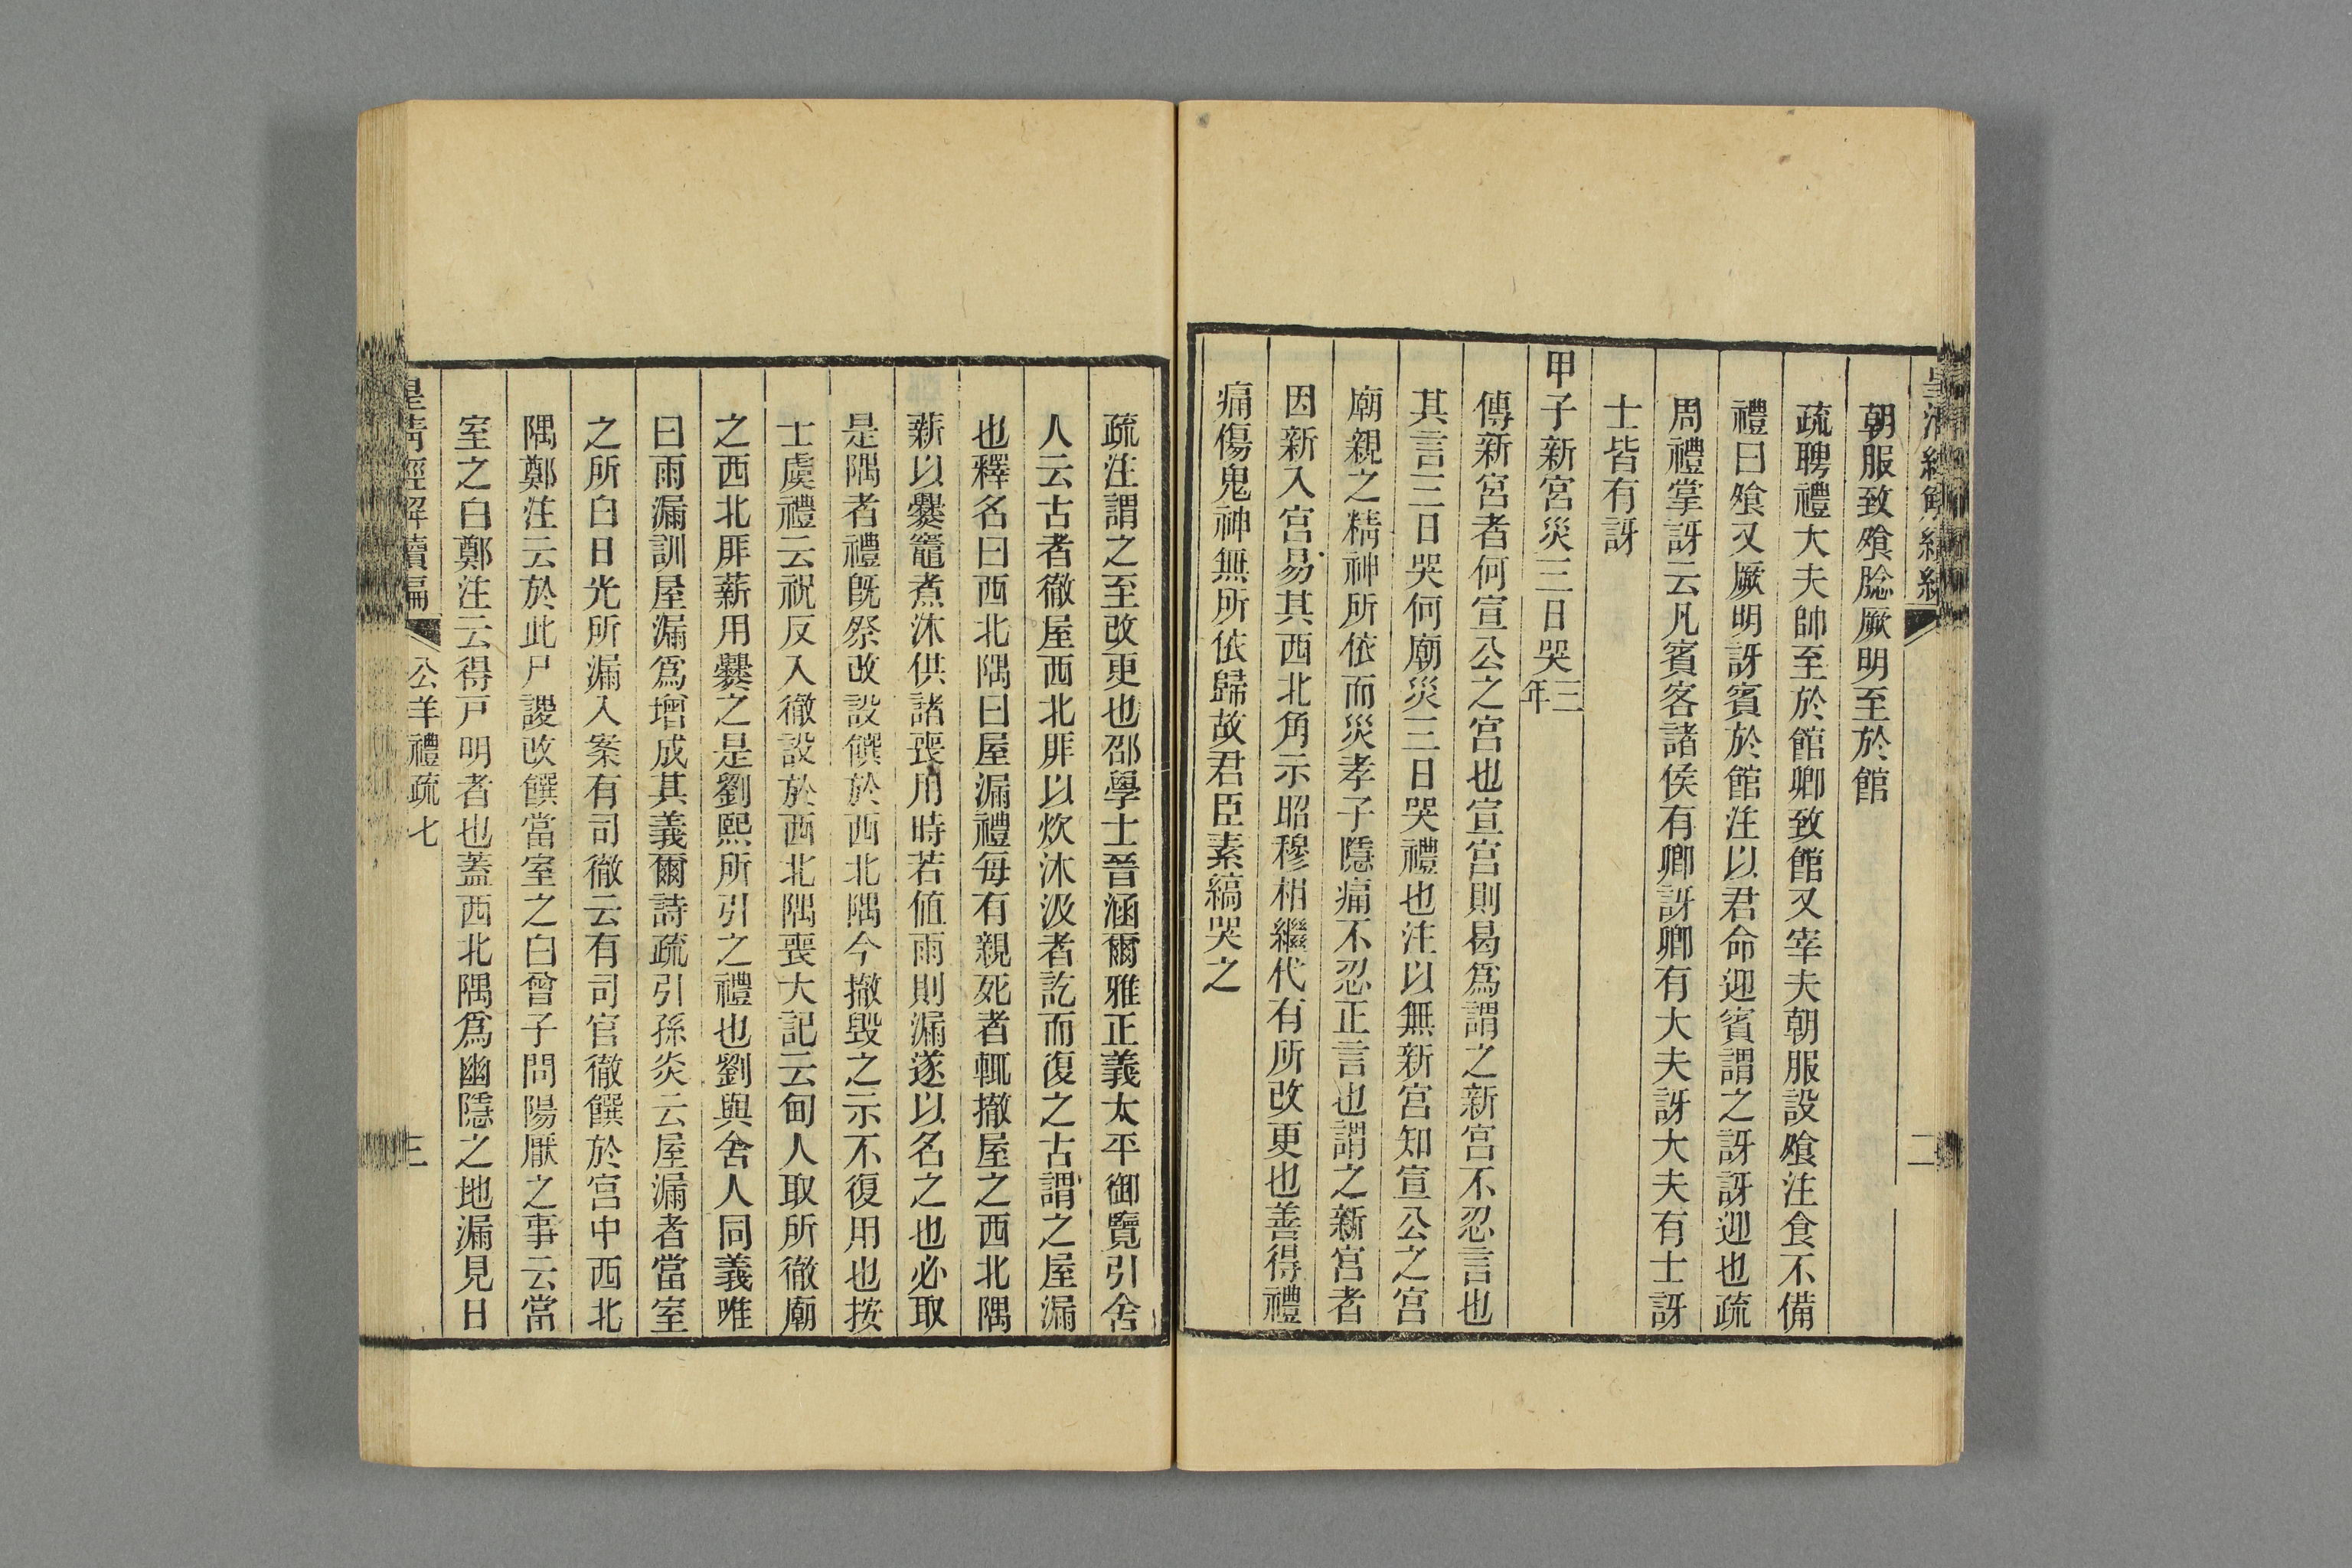 皇清經解續編
二
朝服致飧脤厥明至於館
疏聘禮大夫帥至於館卿致館又宰夫朝服設飧注食不備
禮曰飧又厥明訝賓於館注以君命迎賓謂之訝訝迎也疏
周禮掌訝云凡賓客諸侯有卿訝卿有大夫訝大夫有士訝
士皆有訝
甲子新宮災三日哭三年
傳新宮者何宣公之宮也宣宮則曷爲謂之新宮不忍言也
其言三日哭何廟災三日哭禮也注以無新宮知宣公之宮
廟親之精神所依而災孝子隱痛不忍正言也謂之新宮者
因新入宮易其西北角示昭穆相繼代有所改更也善得禮
痛傷鬼神無所依歸故君臣素縞哭之
疏注謂之至改更也邵學士晉涵爾雅正義太平御覽引舍
人云古者徹屋西北厞以炊沐汲者訖而復之古謂之屋漏
也釋名曰西北隅曰屋漏禮每有親死者輒撤屋之西北隅
薪以爨竈煮沐供諸喪用時若值雨則漏遂以名之也必取
是隅者禮既祭改設饌於西北隅今撤毀之示不復用也按
士虞禮云祝反入徹設於西北隅喪大記云甸人取所徹廟
之西北厞薪用爨之是劉熙所引之禮也劉與舍人同義唯
曰雨漏訓屋漏爲增成其義爾詩疏引孫炎云屋漏者當室
之所白日光所漏入案有司徹云有司官徹饌於宮中西北
隅鄭注云於此尸謖改饌當室之白曾子問陽厭之事云當
室之白鄭注云得戸明者也蓋西北隅爲幽隱之地漏見日
皇清經解續編
公羊禮疏七
三